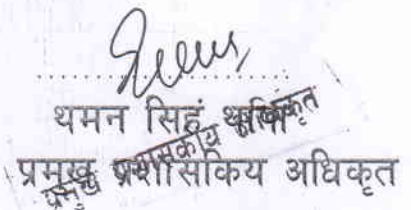 थमन सिहं थापा
प्रमुख प्रशासकिय अधिकृत
प्रमुख प्रशासकीय अधिकृत